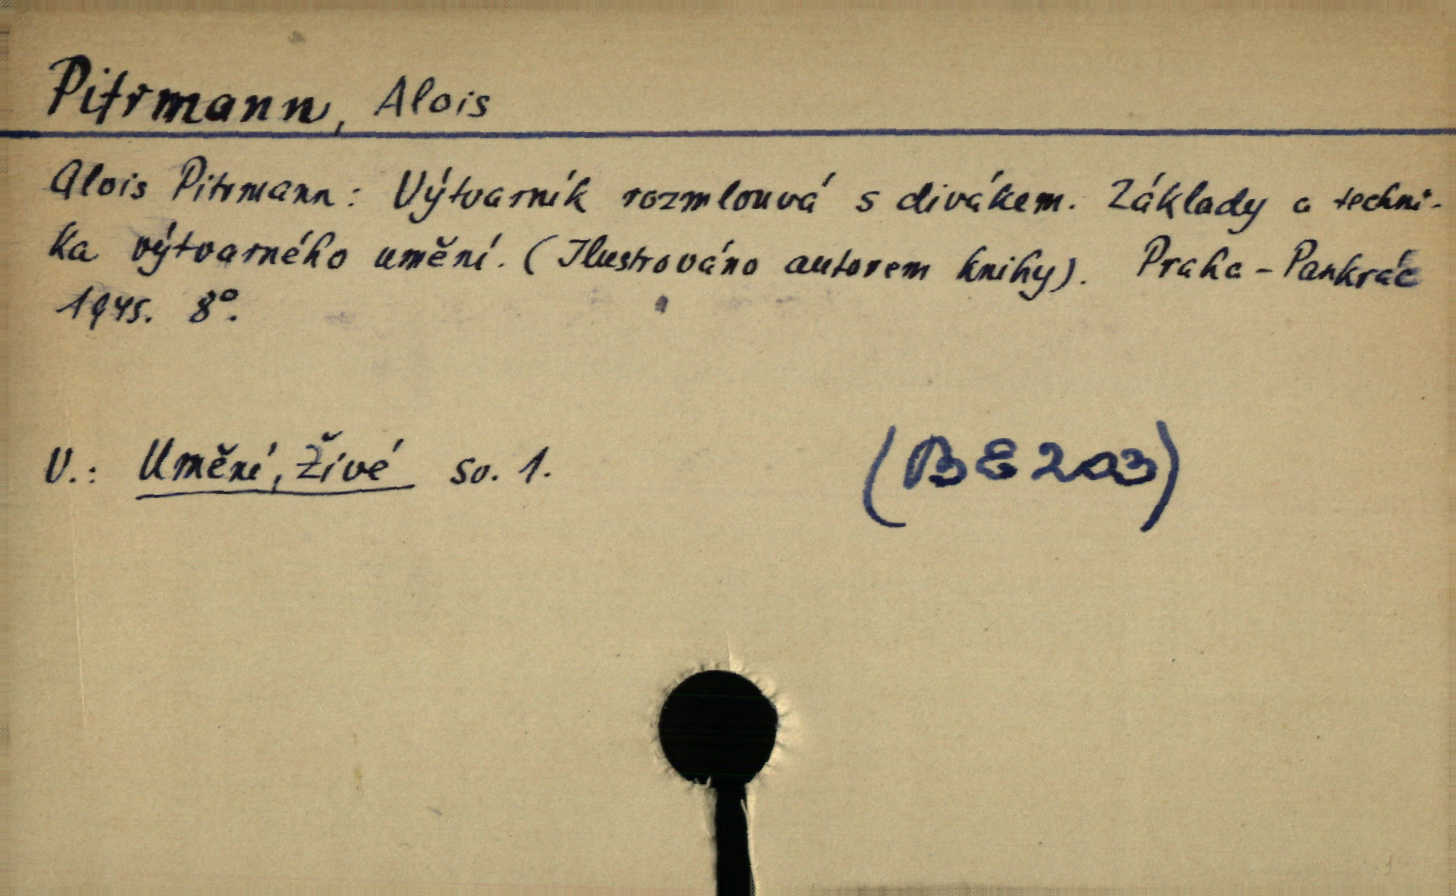 Pitrmann, Alois
Alois Pitrmann: Výtvarník rozmlouvá s divákem. Základy a techni-
ka výtvarného umění. (Ilustrováno autorem knihy). Praha - Pankrác
1945. 8°.
V.: Umění, Živé sv. 1.
(BE203)